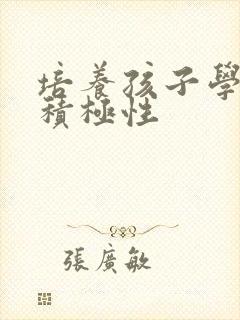 培養孩子學
積極性
張廣敏